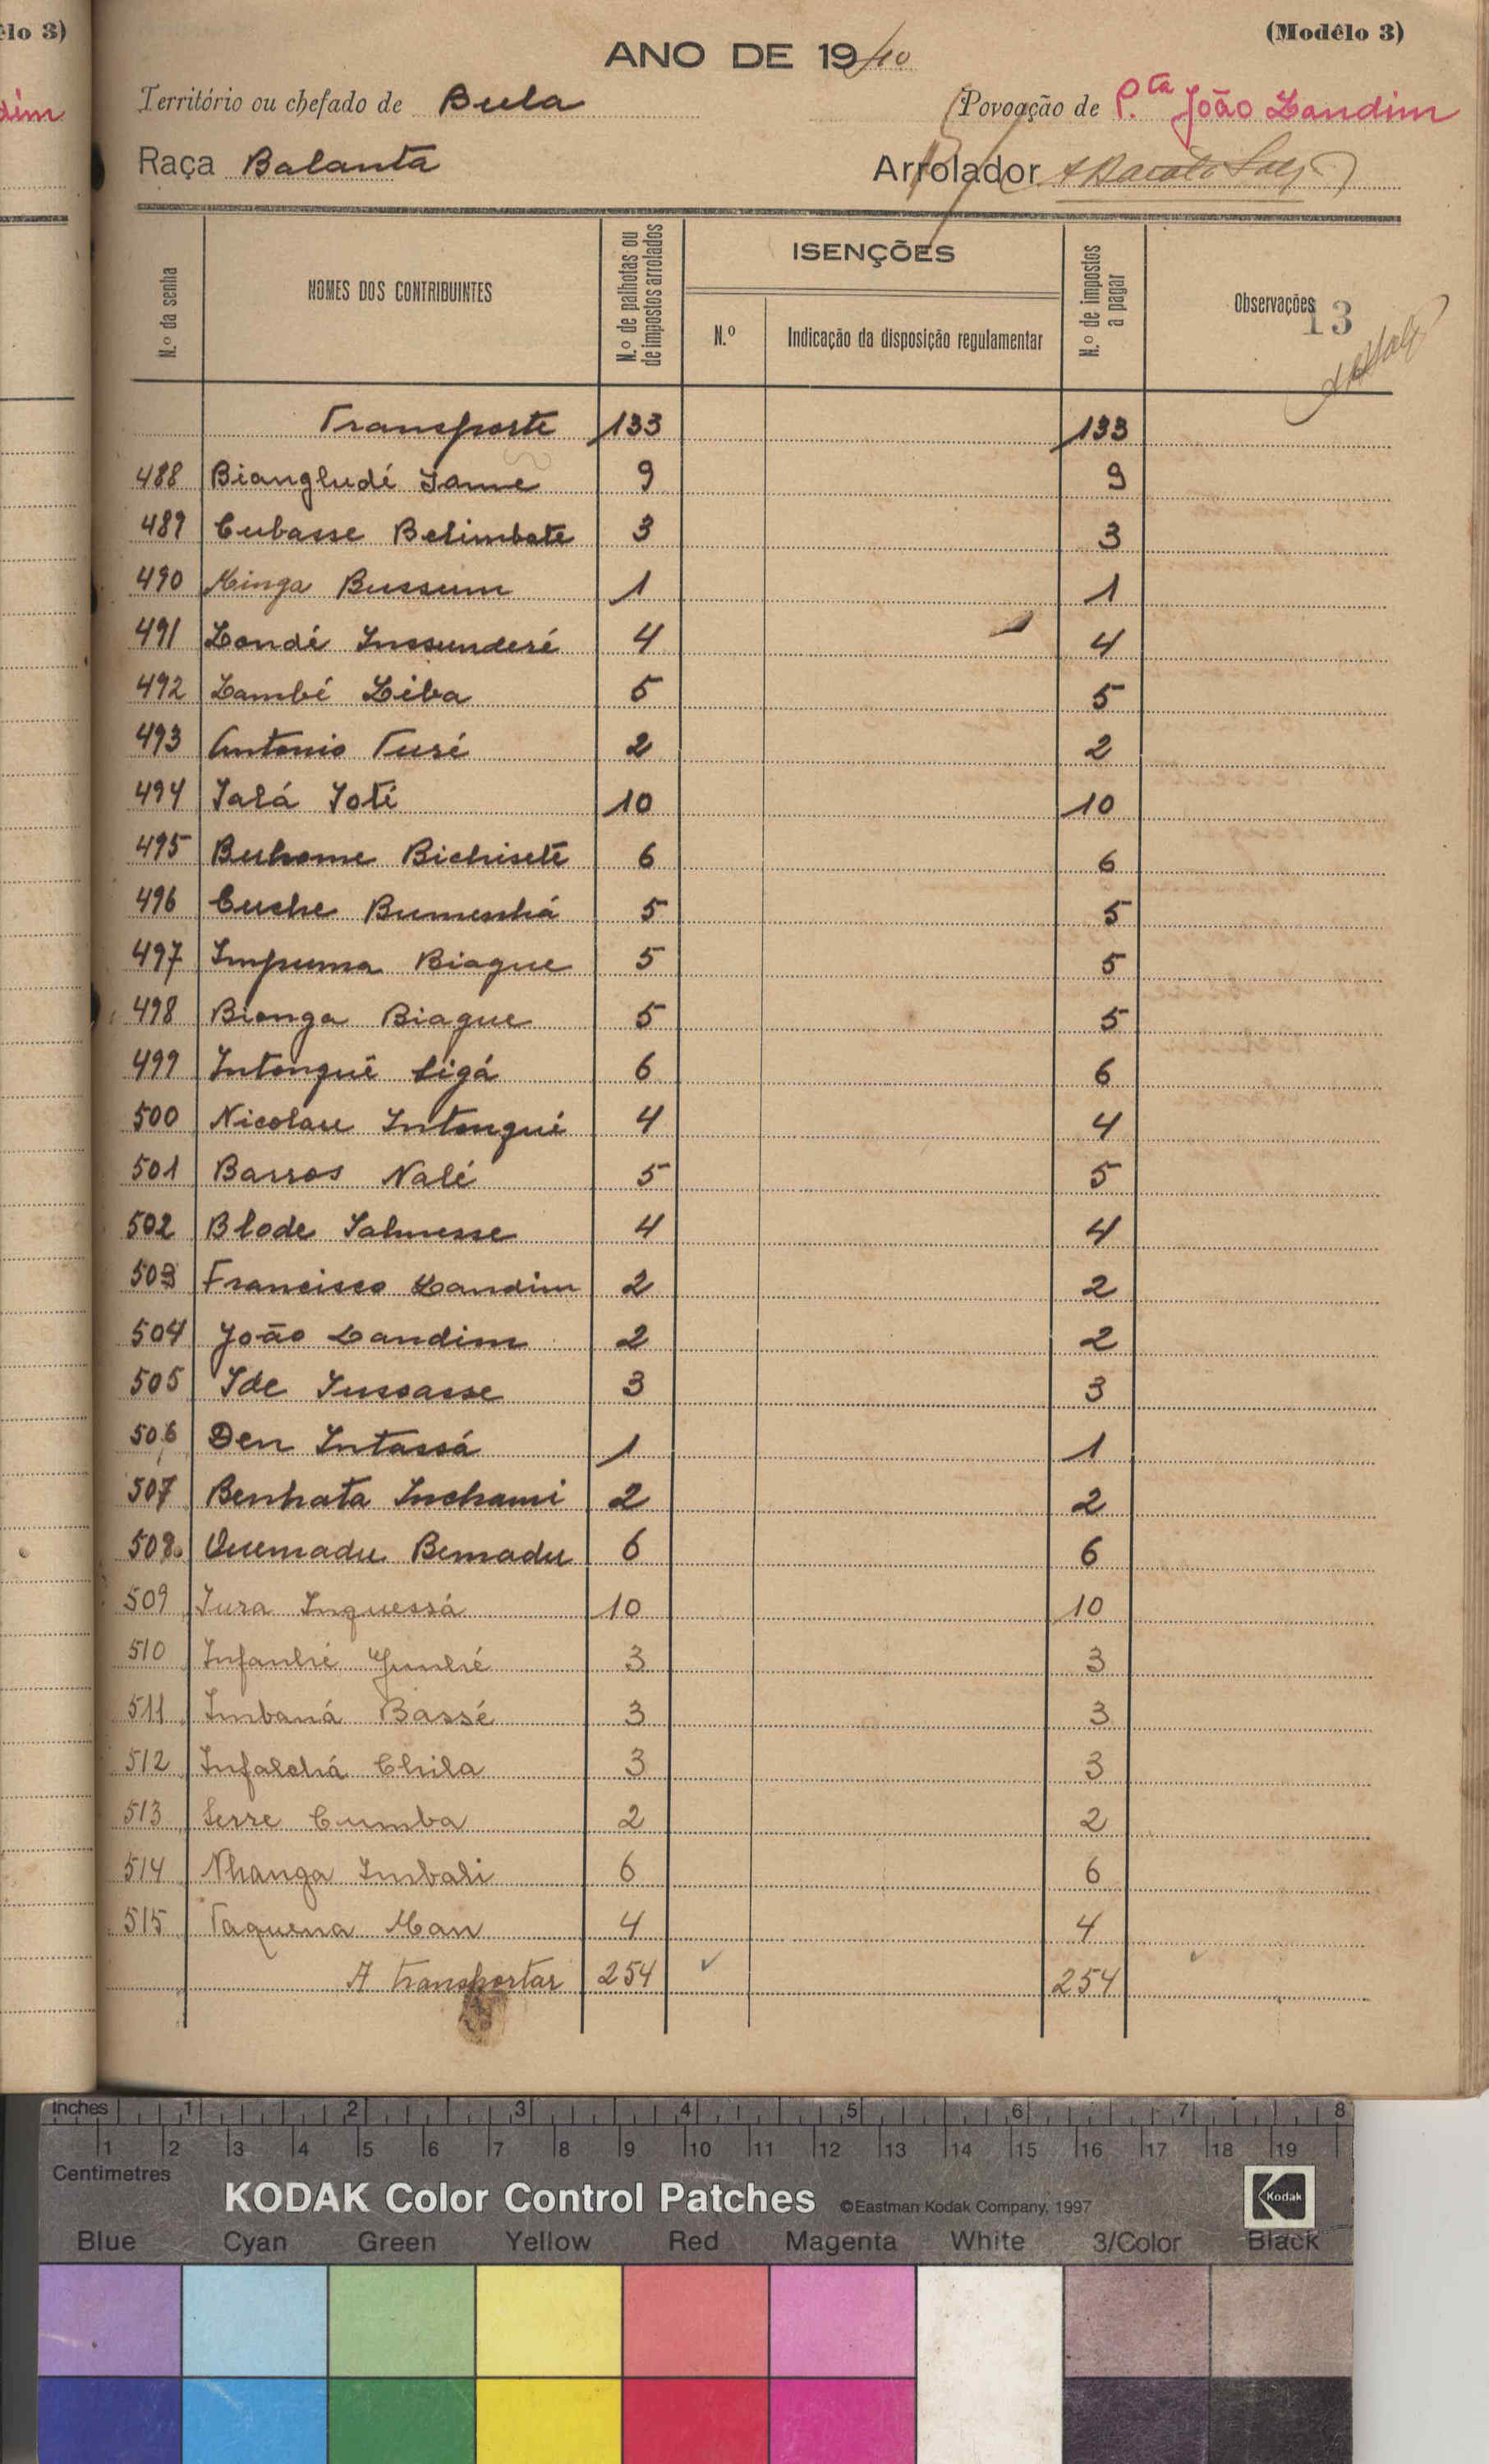 êlo 3)
dim
(Modêlo 3)
ANO DE 1940
Território ou chefado de Bula
Povoação de P.ta João Landim
Raça Balanta
Arrolador
N.º da senha
NOMES DOS CONTRIBUINTES
N.º de palhotas ou de impostos arrolados
ISENÇÕES
N.º
Indicação da disposição regulamentar
N.º de impostos a pagar
Observações
13
Transporte 133 133
488 Biangludé Iame 9 9
489 Cubasse Belimbate 3 3
490 Minga Bussum 1 1
491 Londé Inssunderé 4 4
492 Lambé Liba 5 5
493 Antonio Turé 2 2
494 Ialá Ioté 10 10
495 Buhome Bichiseté 6 6
496 Cuche Bumenhá 5 5
497 Impuma Biague 5 5
498 Bionga Biague 5 5
499 Intonguê Sigá 6 6
500 Nicolau Intongué 4 4
501 Barros Nalé 5 5
502 Blode Salmesse 4 4
503 Francisco Landim 2 2
504 João Landim 2 2
505 Ide Inssasse 3 3
506 Den Intassá 1 1
507 Benhata Inchami 2 2
508 Quemadu Bemadu 6 6
509 Iura Inquessá 10 10
510 Infanhé 3 3
511 Imbaná Bassé 3 3
512 Infalchá Chila 3 3
513 Serre Cumba 2 2
514 Nhanga Imbali 6 6
515 Taquena Man 4 4
A transportar 254 254
Inches 1 2 3 4 5 6 7 8
1 2 3 4 5 6 7 8 9 10 11 12 13 14 15 16 17 18 19
Centimetres
KODAK Color Control Patches ©Eastman Kodak Company, 1997 Kodak
Blue Cyan Green Yellow Red Magenta White 3/Color Black